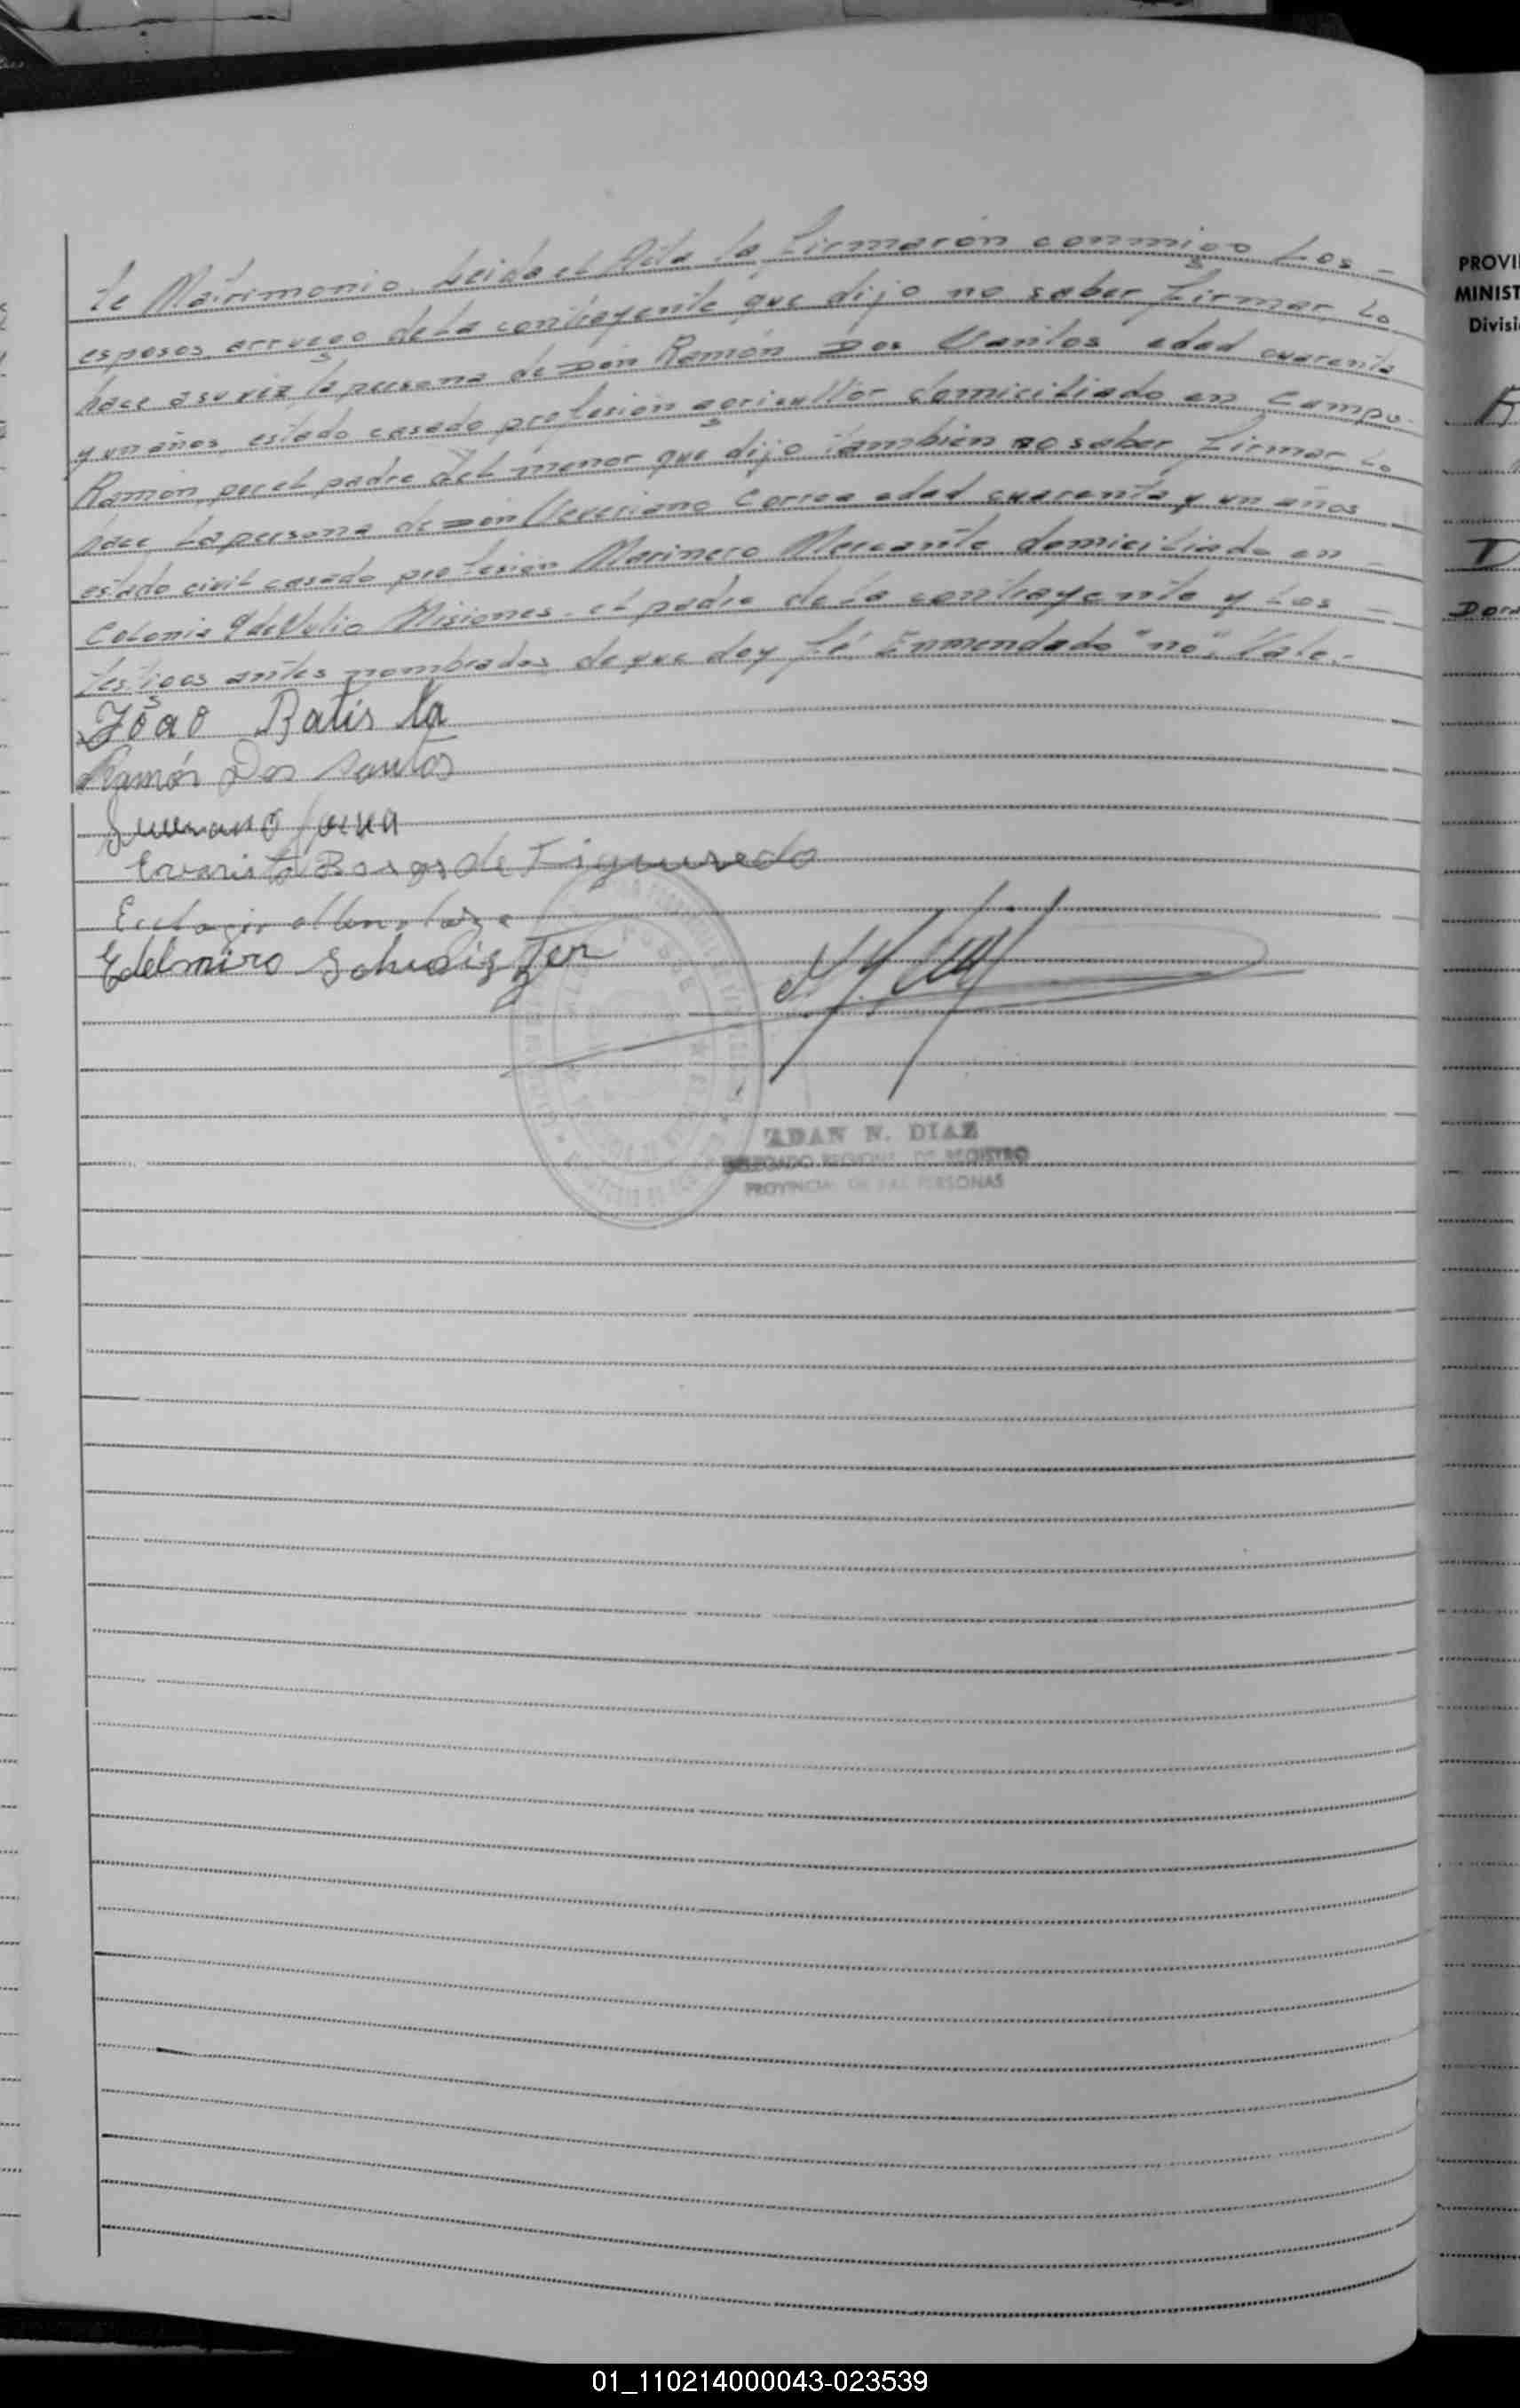 te Matrimonio. Leida el Acta la firmarón conmigo Los -
esposos arruego de La contrayente que dijo no saber firmar, Lo
hace a su vez la persona de Don Ramón Dos Santos edad cuarenta
y un años, estado casado profesión agricultor domiciliado en Campo
Ramón, por el padre del menor que dijo tambien no saber firmar, Lo
hace La persona de Don Severiano Correa edad cuarenta y un años
estado civil casado profesión Marinero Mercante domiciliado en -
Colonia 9 de Julio Misiones. el padre de la contrayente y Los -
testigos antes nombrados, de que doy fé. Enmendado "no". Vale.-
João Batista
Ramón Dos Santos
Borges de Figueredo
Edelmiro
ADAN N. DIAZ
DELEGADO REGIONAL DE REGISTRO
PROVINCIAL DE LAS PERSONAS
PROVI
MINIST
Divisi
01_110214000043-023539